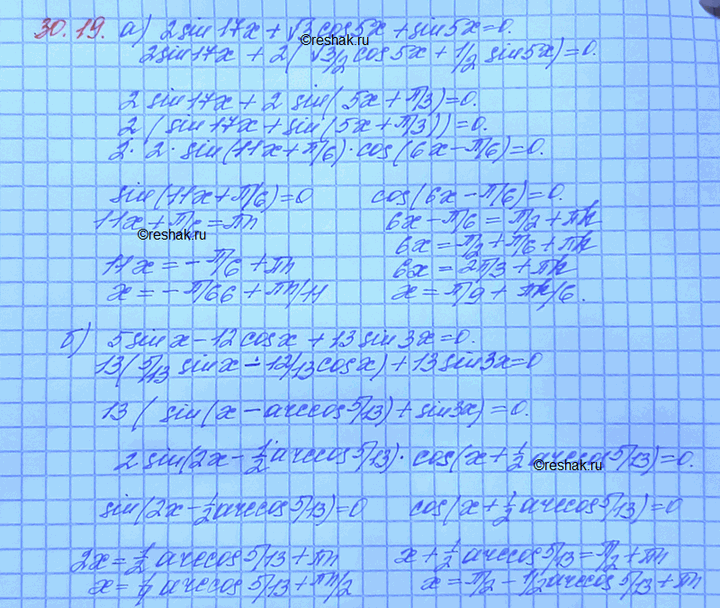 30.19. а) 2sin17x + √3cos5x + sin5x=0.
©reshak.ru
2sin17x + 2(√3/2 cos5x + 1/2 sin5x)=0.
2 sin17x + 2 sin(5x+π/3)=0.
2 (sin17x + sin(5x+π/3))=0.
2·2·sin(11x+π/6)·cos(6x-π/6)=0.
sin(11x+π/6)=0 cos(6x-π/6)=0.
11x+π/6=πn 6x-π/6=π/2+πk
©reshak.ru
6x=π/2+π/6+πk
11x=-π/6+πn 6x=2π/3+πk
x=-π/66+πn/11 x=π/9+πk/6.
б) 5sinx-12cosx+13sin3x=0.
13(5/13 sinx-12/13cosx)+13sin3x=0
13 (sin(x-arccos5/13)+sin3x)=0.
2sin(2x-1/2arccos5/13)·cos(x+1/2arccos5/13)=0.
©reshak.ru
sin(2x-1/2arccos5/13)=0 cos(x+1/2arccos5/13)=0
2x=1/2arccos5/13+πn x+1/2arccos5/13=π/2+πn
x=1/4arccos5/13+πn/2 x=π/2-1/2arccos5/13+πn